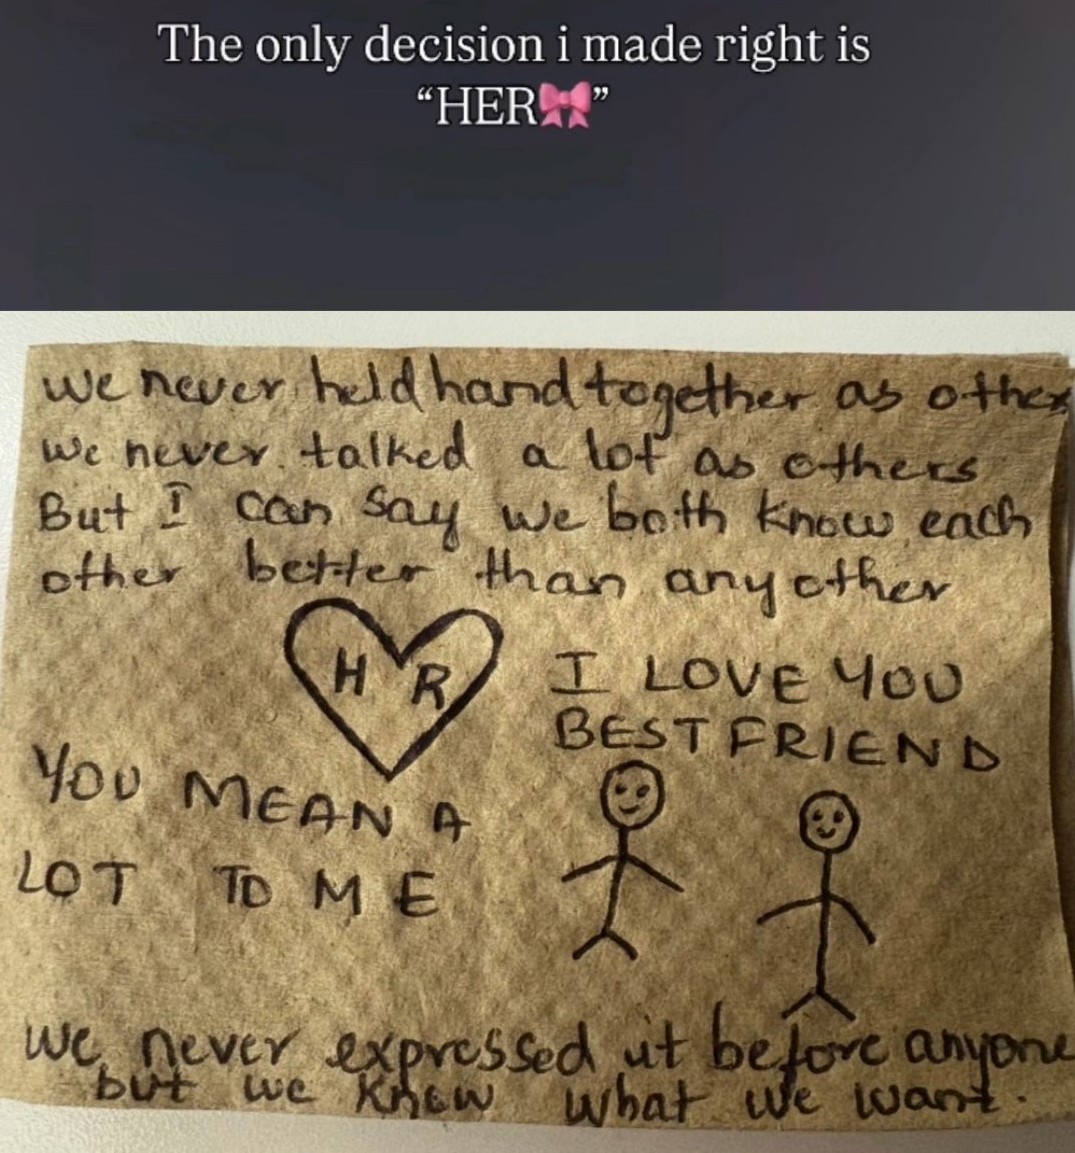 The only decision i made right is
“HER🎀”
we never held hand together as other
we never talked a lot as others
But I can say we both know each
other better than any other
H R
I LOVE YOU
BEST FRIEND
YOU MEAN A
LOT TO ME
we never expressed it before anyone
but we know what we want.